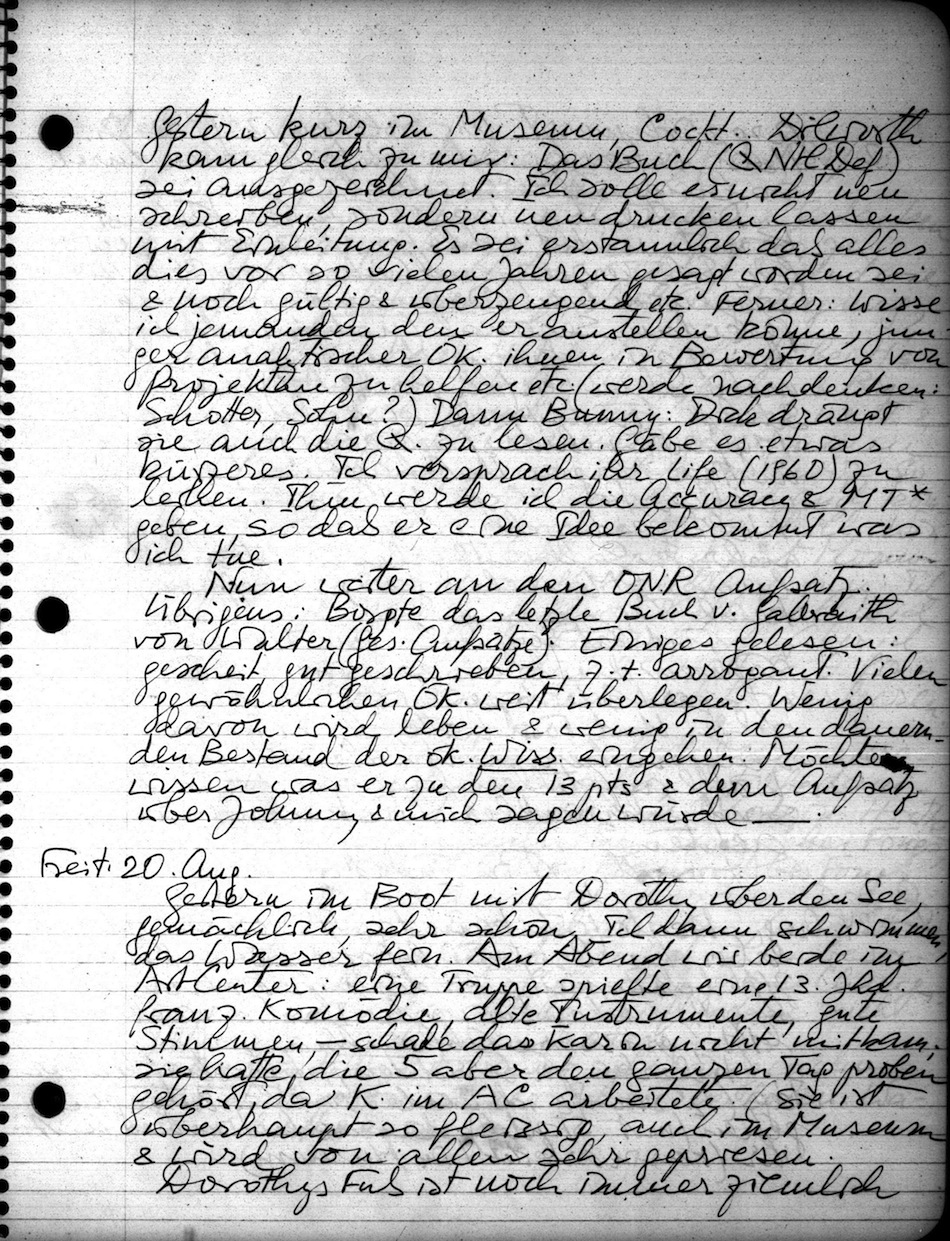 Gestern kurz im Museum, Cockt. Dilworth
kam gleich zu mir: Das Buch (Q NatDef)
sei ausgezeichnet. Ich solle es nicht neu
schreiben, sondern neu drucken lassen
mit Einleitung. Es sei erstaunlich das alles
dies vor so vielen Jahren gesagt worden sei
& noch gültig & überzeugend etc. Ferner: wisse
ich jemanden den er anstellen könne, jun
ger analytischer Ök. ihnen in Bewertung von
Projekten zu helfen etc. (werde nachdenken:
Schotter, Sohn?) Dann Bunny: Dick drängt
sie auch die Q. zu lesen. Gäbe es etwas
kürzeres. Ich versprach ihr Life (1960) zu
leihen. Ihm werde ich die Accuracy & MT*
geben, so das er eine Idee bekommt was
ich tue.
Nun weiter an dem ONR Aufsatz.
Übrigens: Borgte das letzte Buch v. Galbraith
von Walter (ges. Aufsätze). Einiges gelesen:
gescheit, gut geschrieben, z.t. arrogant. Vielen
gewöhnlichen Ök. weit überlegen. Wenig
davon wird leben & wenig in den dauern-
den Bestand der ök. Wiss. eingehen. Möchte
wissen was er zu den 13 pts & dem Aufsatz
über Johnny & mich sagen würde —.
Freit. 20. Aug.
Gestern im Boot mit Dorothy über den See,
gemächlich, sehr schön. Ich dann schwimmen,
das Wasser fein. Am Abend wir beide im
ArtCenter: eine Truppe spielte eine 13. Jhd.
franz. Komödie, alte Instrumente, gute
Stimmen, – schade das Karin nicht mitkam,
sie hatte die 5 aber den ganzen Tag proben
gehört, da K. im AC arbeitete. (Sie ist
überhaupt so fleissig, auch im Museum
& wird von allen sehr gepriesen.
Dorothys Fuß ist noch immer ziemlich